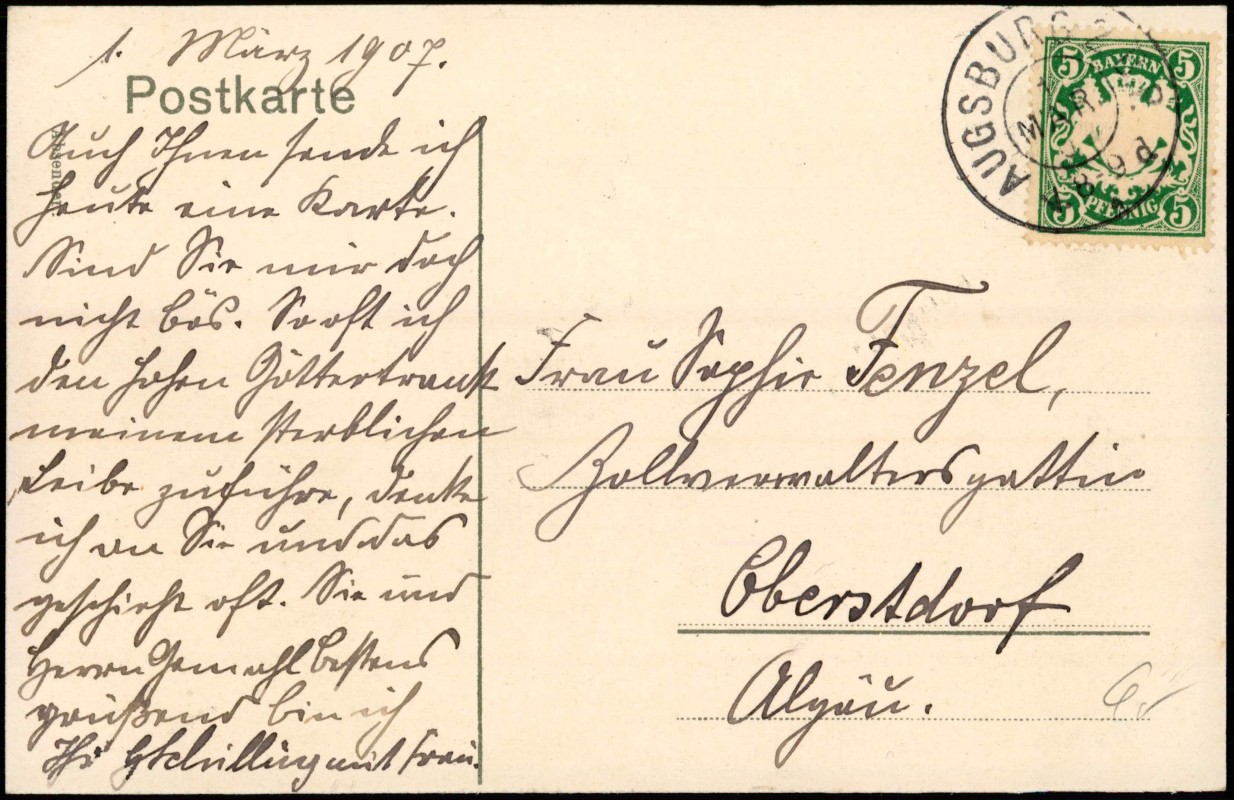 1. März 1907.
Postkarte
Absender
Auch Ihnen sende ich
heute eine Karte.
Sind Sie mir doch
nicht bös. So oft ich
den hohen Göttertrank
meinem sterblichen
Leibe zuführe, denke
ich an Sie und das
geschieht oft. Sie und
Herrn Gemahl bestens
grüßend bin ich
Ihr GSchilling mit Frau.
AUGSBURG 2
1 MÄR
BAYERN
5 5
5 5
PFENNIG
Frau Sophie Fenzel,
Zollverwaltersgattin
Oberstdorf
Algäu.